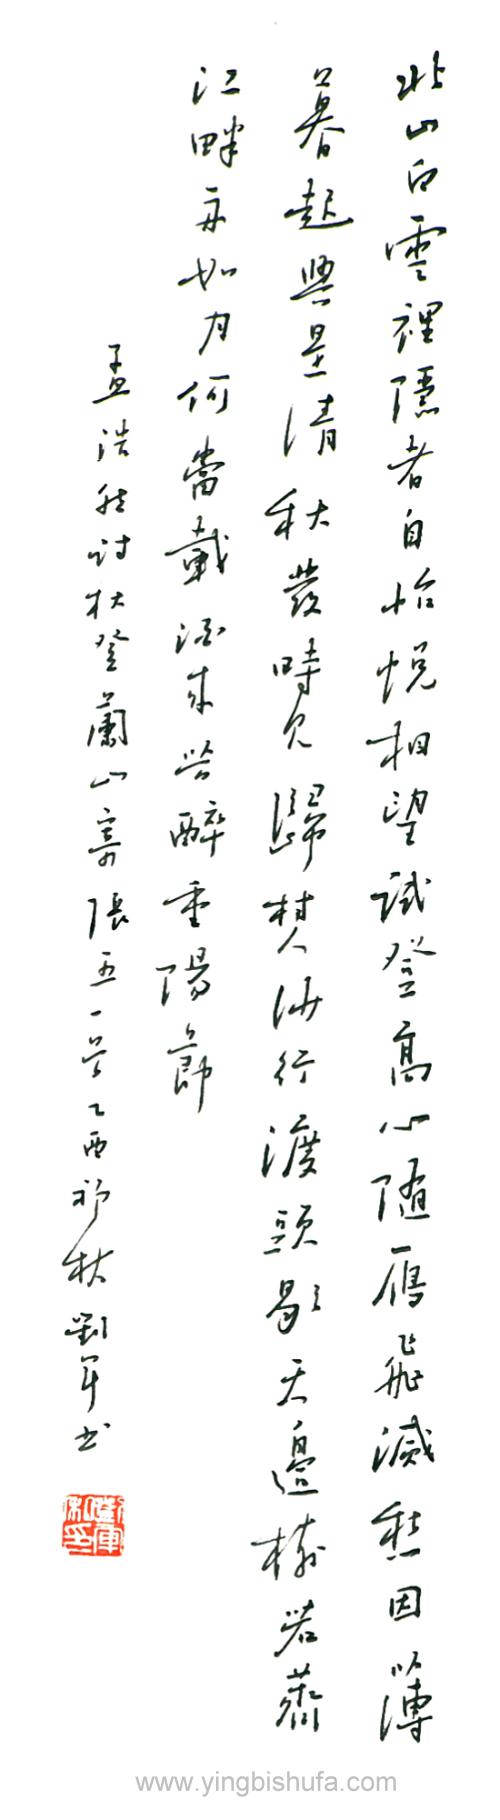 北山白雲裡隱者自怡悅相望試登高心隨雁飛滅愁因薄
暮起興是清秋發時見歸村人沙行渡頭歇天邊樹若薺
江畔舟如月何當載酒來共醉重陽節
孟浩然詩秋登蘭山寄張五一首乙酉初秋劉軍書
劉軍私印
www.yingbishufa.com